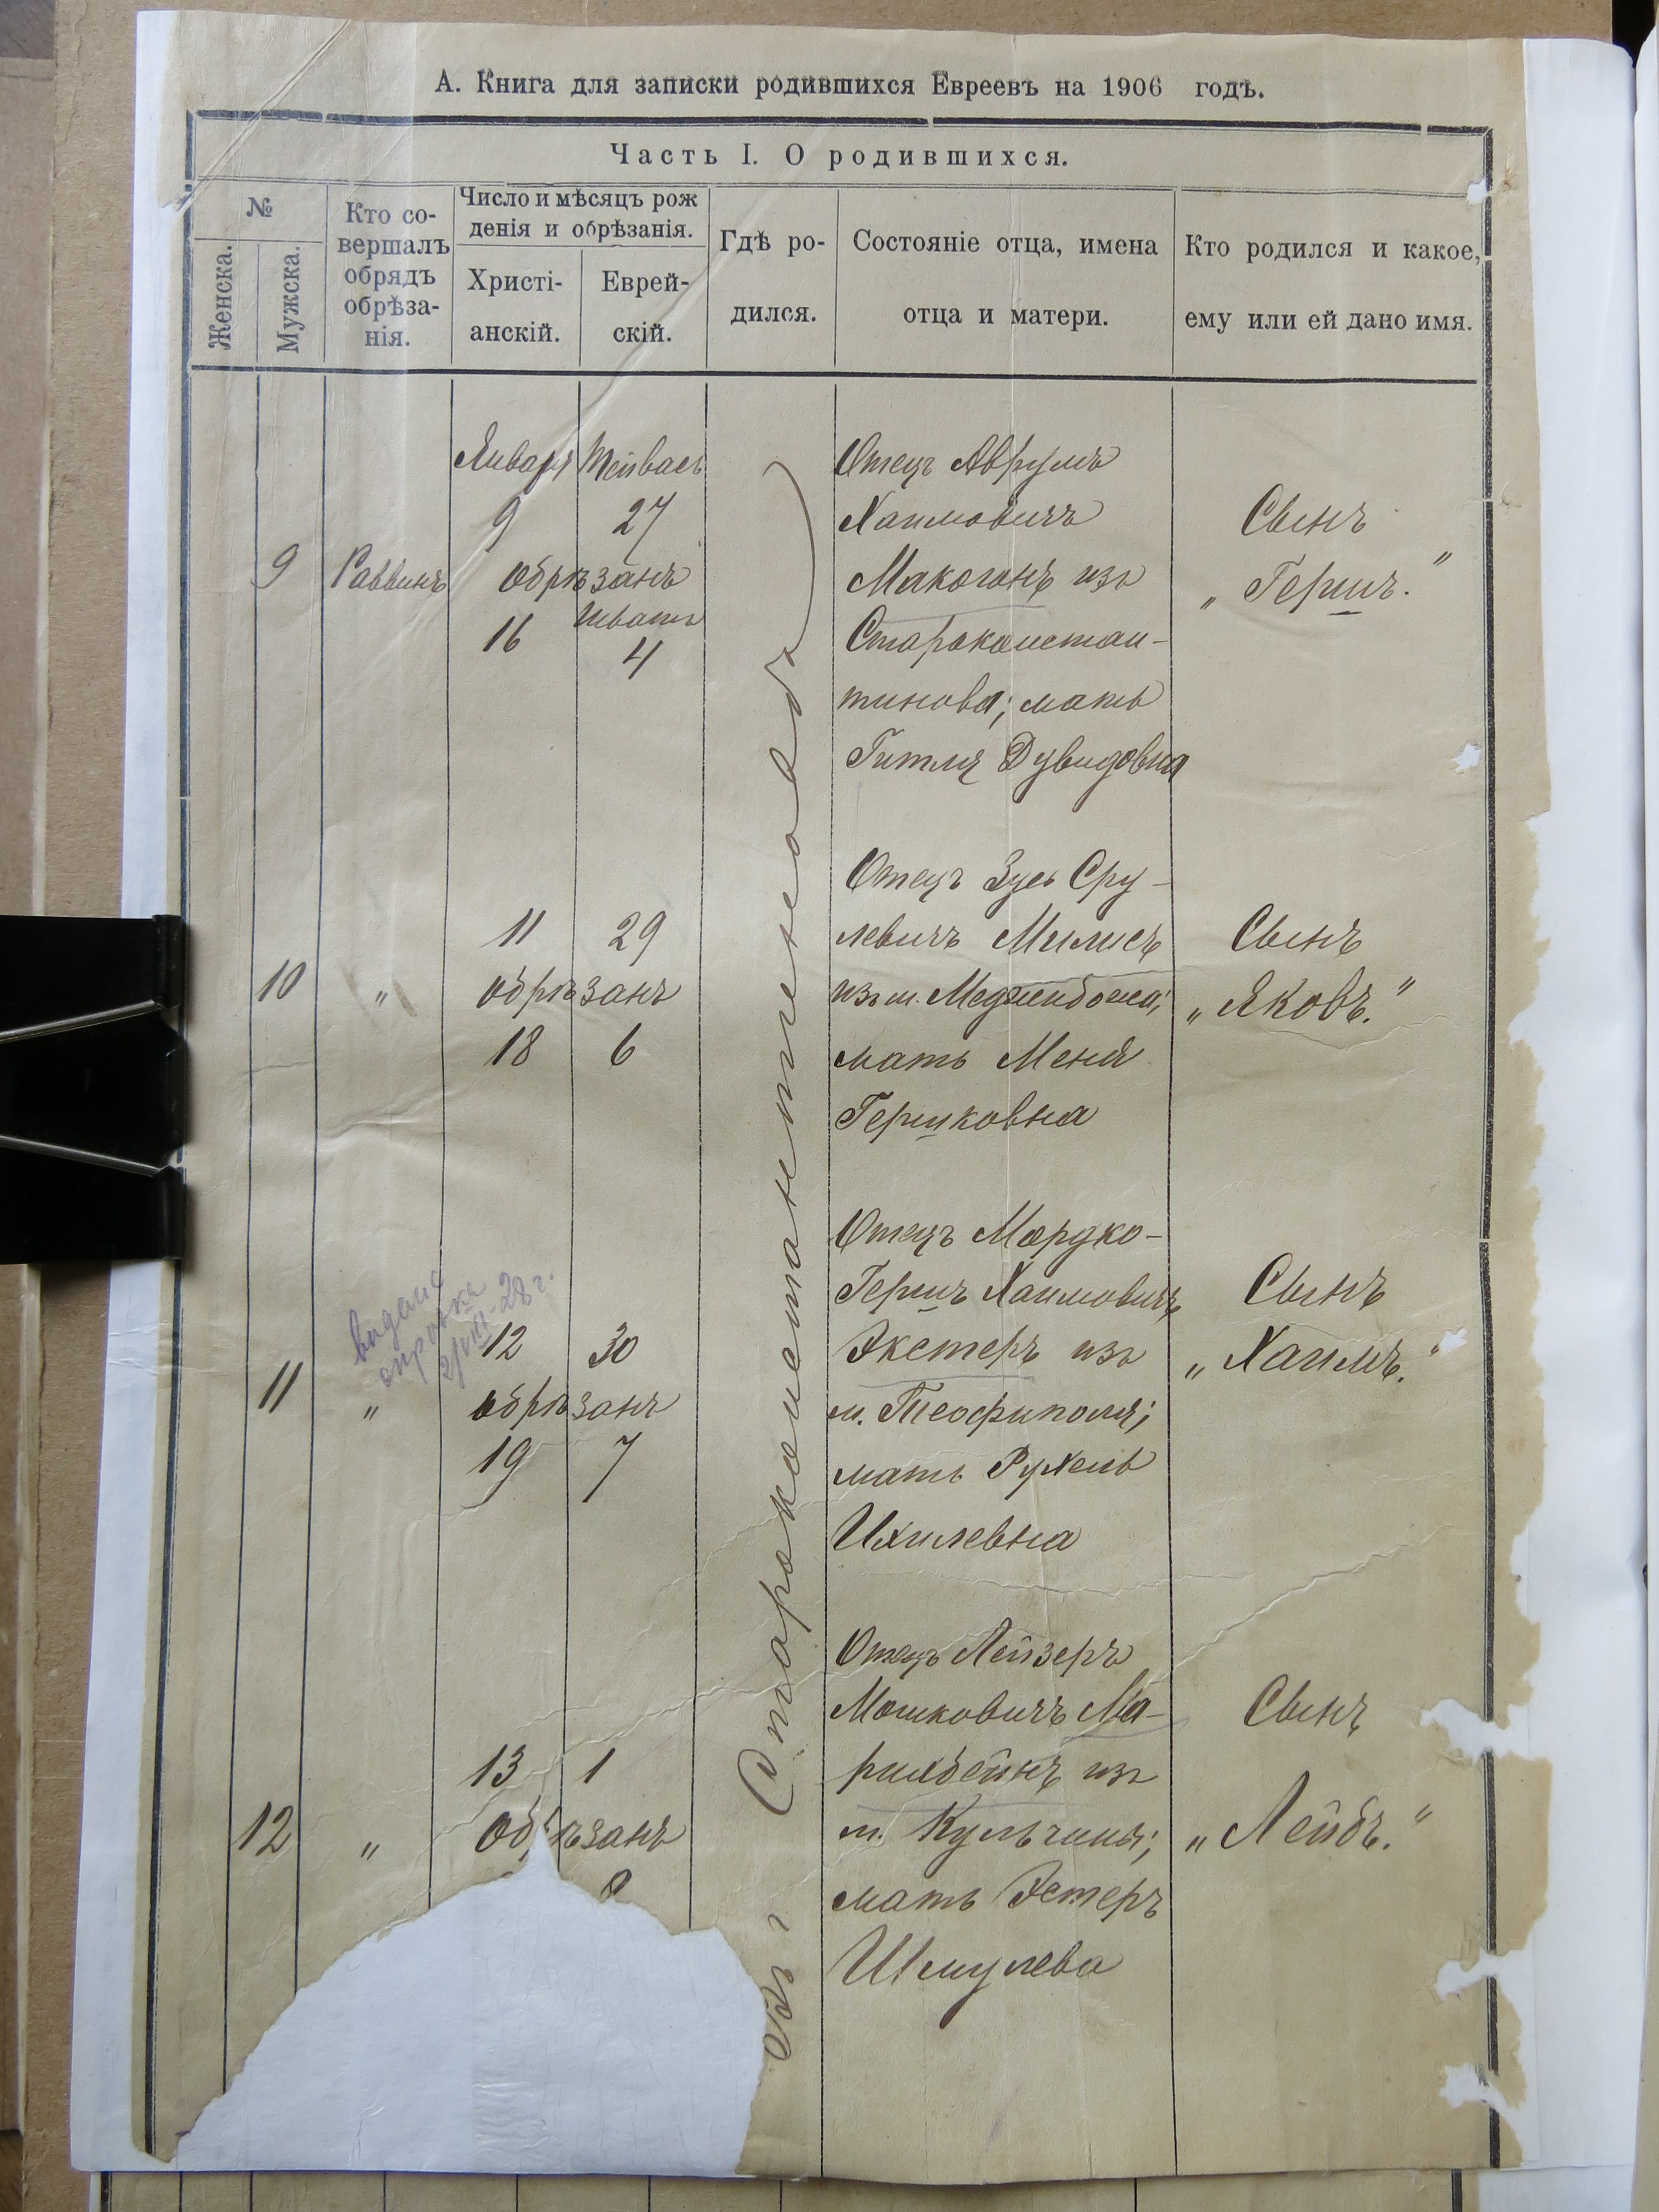 А. Книга для записки родившихся Евреевъ на 1906 годъ.
Часть I. О родившихся.
№
Женска.
Мужска.
Кто со-
вершалъ
обрядъ
обрѣза-
нія.
Число и мѣсяцъ рож
денія и обрѣзанія.
Христі-
анскій.
Еврей-
скій.
Гдѣ ро-
дился.
Состояніе отца, имена
отца и матери.
Кто родился и какое,
ему или ей дано имя.
Января Тейвасъ
9 27
9 Раввинъ обрѣзанъ
Шватъ
16 4
Отецъ Аврумъ
Хаимовичъ
Макогонъ изъ
Староконстан-
тинова; мать
Гитля Дувидовна
Сынъ
„Гершъ.“
11 29
10 „ обрѣзанъ
18 6
Отецъ Зусь Сру-
левичъ Милисъ
изъ м. Меджибожа;
мать Меня
Гершковна
Сынъ
„Яковъ.“
видана
справка
2/VIII-28 г.
12 30
11 „ обрѣзанъ
19 7
Отецъ Мордко-
Гершъ Хаимовичъ
Экстеръ изъ
м. Теофиполя;
мать Рухель
Ихилевна
Сынъ
„Хаимъ.“
13 1
12 „ обрѣзанъ
8
Отецъ Лейзеръ
Мошковичъ Ма-
рихбейнъ изъ
м. Кульчина;
мать Эстеръ
Шмулева
Сынъ
„Лейбъ.“
Староконстантиновѣ